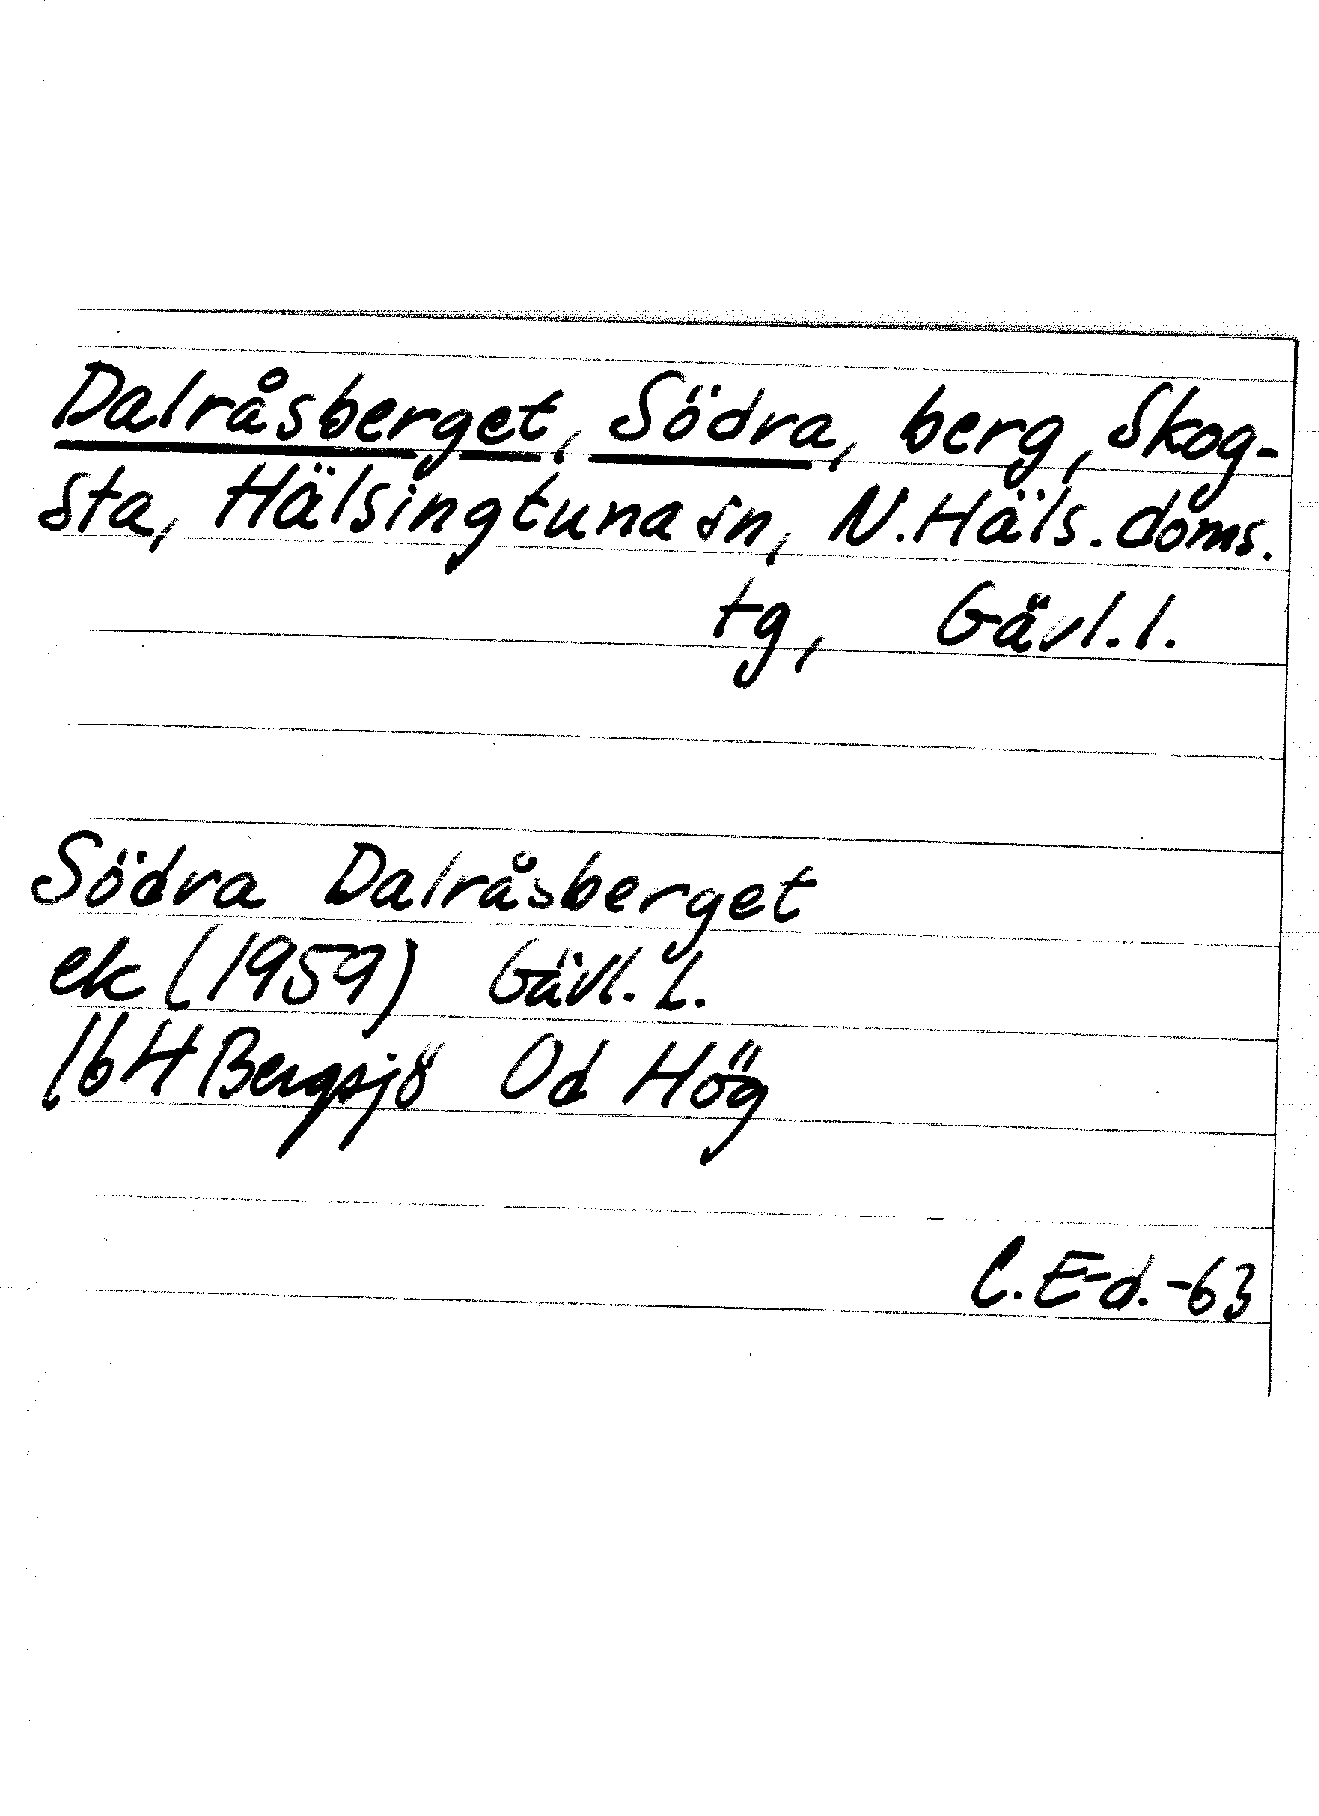 Dalråsberget, Södra, berg, Skog-
sta, Hälsingtuna sn, N.Häls.doms.
tg, Gävl.l.
Södra Dalråsberget
ek (1959) Gävl. L.
16H Bergsjö Od Hög
C.E-d.-63